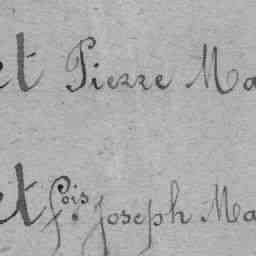 et Pierre Ma
et fois Joseph Ma